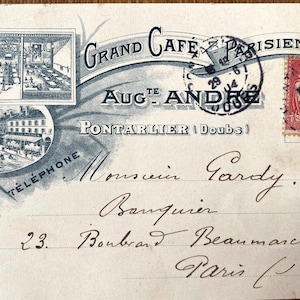 GRAND CAFÉ PARISIEN
AUG.TE ANDRÉ
PONTARLIER (Doubs)
TÉLÉPHONE
Monsieur Pardy.
Banquier
23. Boulevard Beaumarc
Paris (